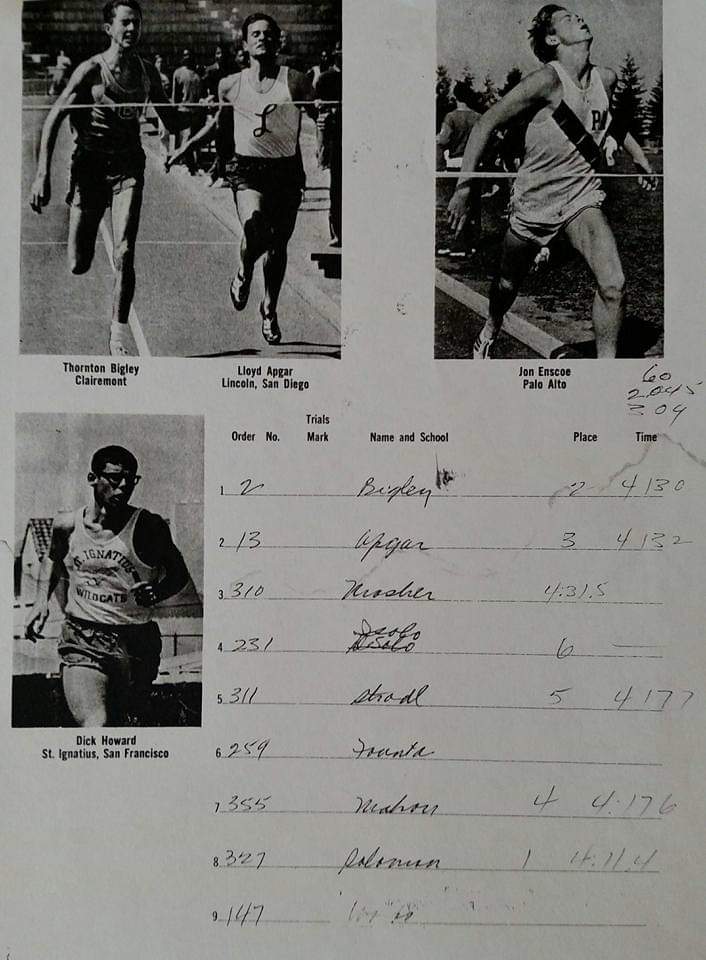 L
PA
Thornton Bigley
Clairemont
Lloyd Apgar
Lincoln, San Diego
Jon Enscoe
Palo Alto
60
2.045
3 04
ST. IGNATIUS
WILDCATS
Dick Howard
St. Ignatius, San Francisco
Trials
Order No. Mark Name and School Place Time
1 2 Bigley 2 4 130
2 13 Apgar 3 4 132
3 310 Mosher 4:31.5
4 231 6 —
5 311 Strodl 5 4 177
6 259
7 355 Mahon 4 4:176
8 327 Solomon 1 4:11.4
9 147